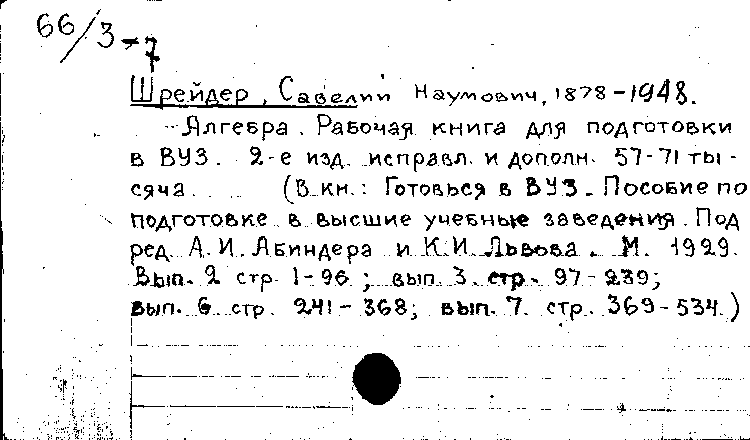 66/3-7
Шрейдер, Савелий Наумович, 1878-1948.
Алгебра. Рабочая книга для подготовки
в ВУЗ. 2-е изд. исправл. и дополн. 57-71 ты-
сяча. (В кн.: Готовься в ВУЗ. Пособие по
подготовке в высшие учебные заведения. Под
ред. А.И. Абиндера и К.И. Львова. М. 1929.
Вып. 2 стр. 1-96; вып. 3. стр. 97-239;
вып. 6 стр. 241-368; вып. 7. стр. 369-534.)